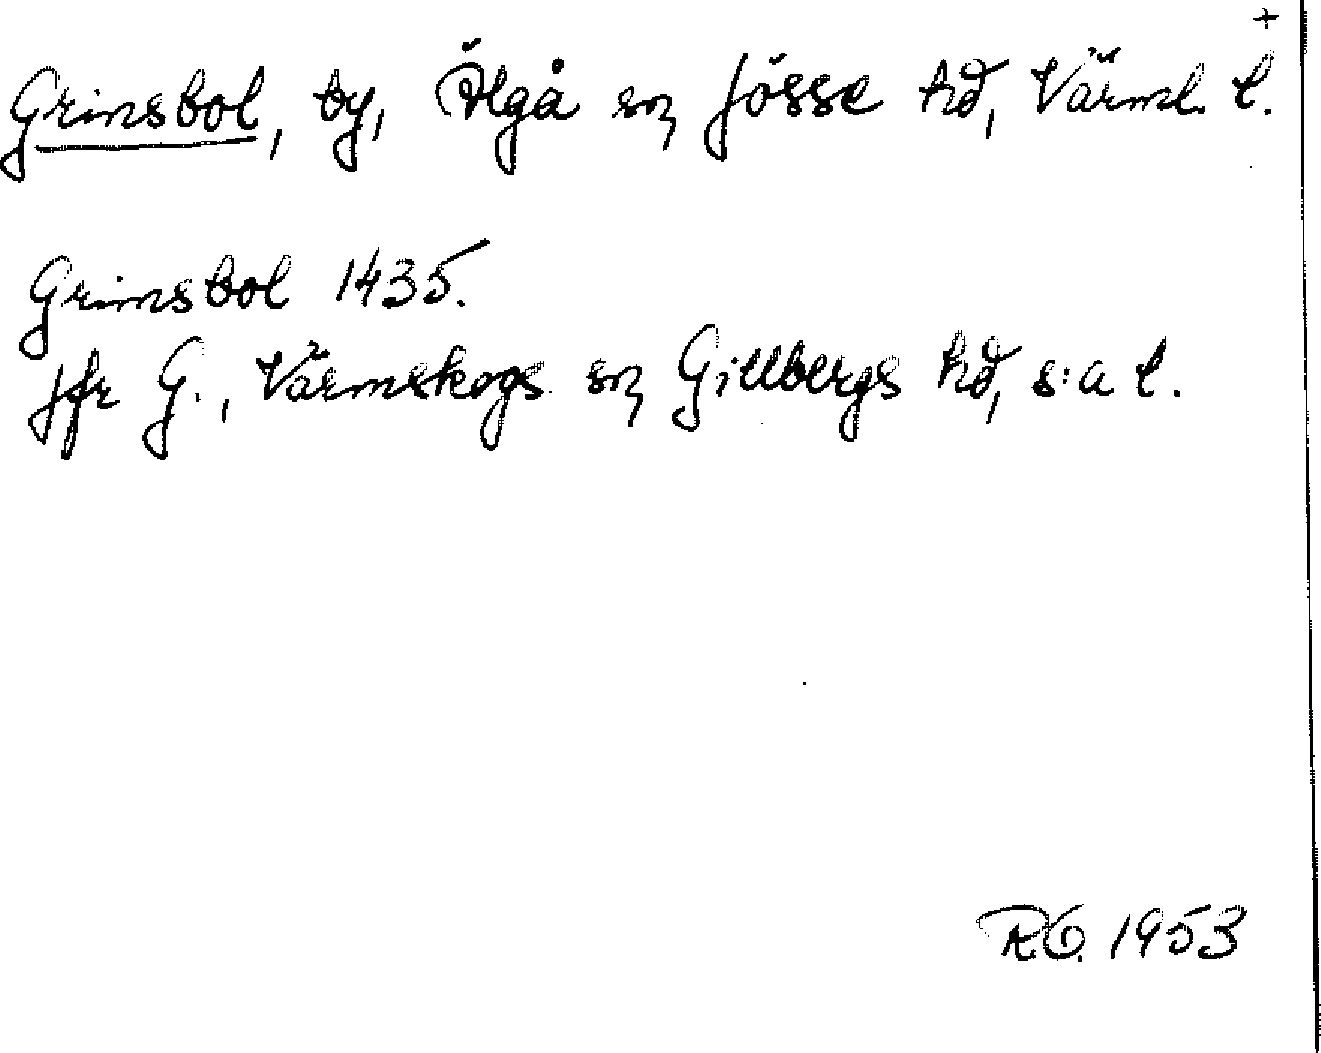 +
Grinsbol, by, Älgå sn, Jösse hd, Värml. l.
Grimsbol 1435.
Jfr G., Värmskogs sn, Gillbergs hd, s:a l.
R.O. 1953